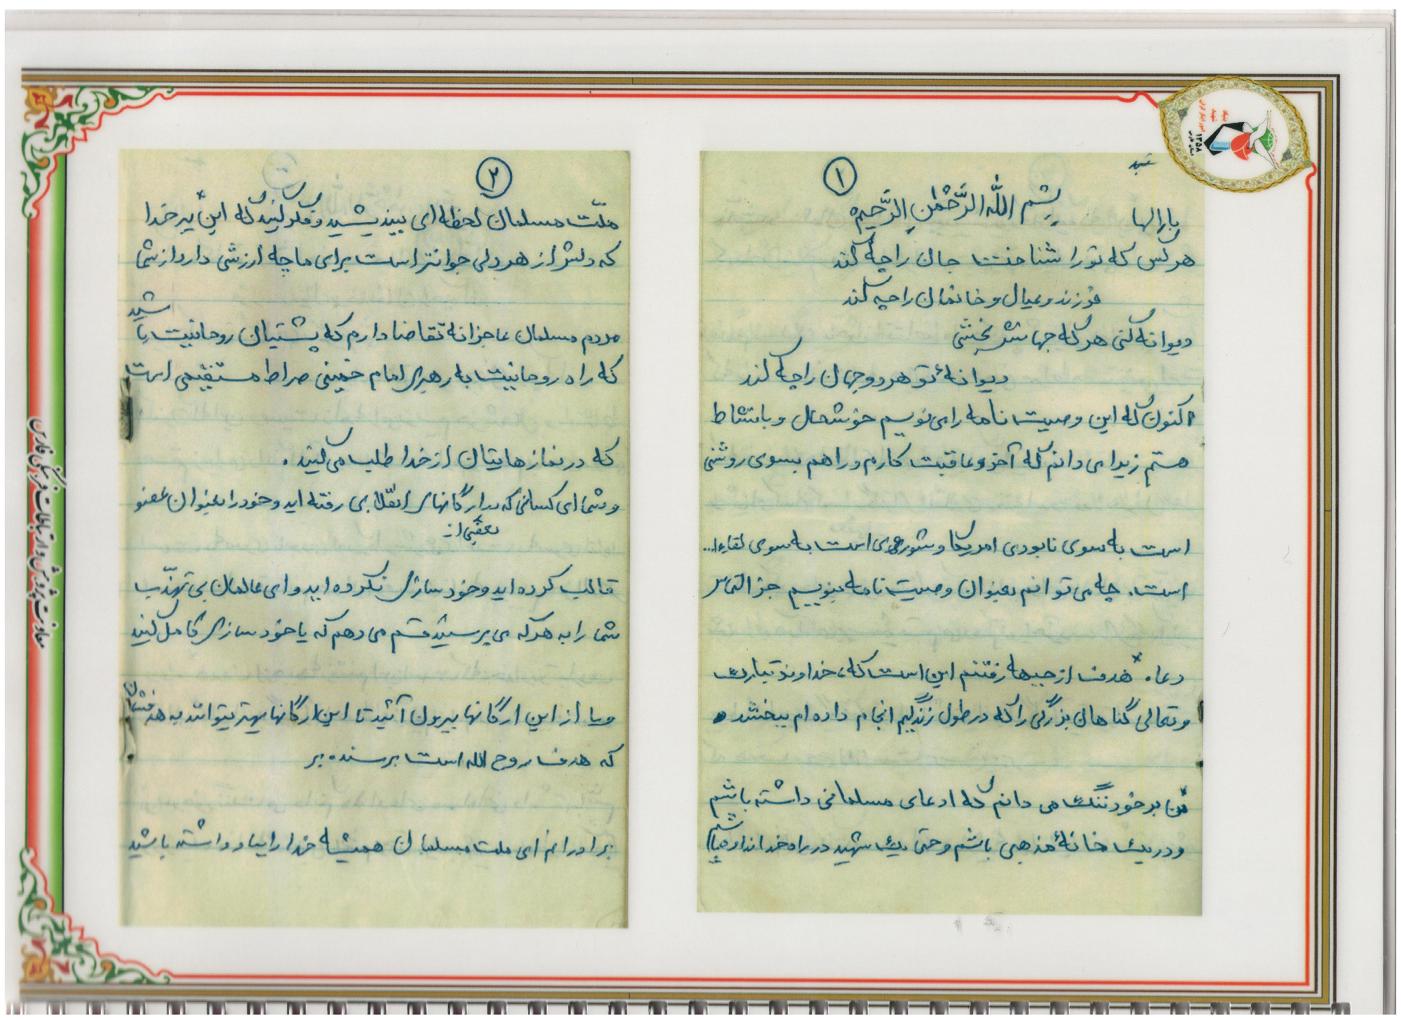 ۱
بسم الله الرحمن الرحیم
بارالها
هر کس که تو را شناخت جان را چه کند
فرزند و عیال و خانمان را چه کند
دیوانه کنی هر که جهانش بخشی
دیوانهٔ تو هر دو جهان را چه کند
اکنون که این وصیت نامه را می نویسم خوشحال و با نشاط
هستم زیرا می دانم که آخر و عاقبت کارم و راهم بسوی روشنی
است به سوی نابودی امریکا و شوروی است به سوی لقاء ا...
است. چه می توانم بعنوان وصیت نامه بنویسم جز التماس
دعا. هدف از جبهه رفتنم این است که، خداوند تبارک
و تعالی گناهان بزرگی را که در طول زندگیم انجام داده ام ببخشد
من بر خود ننگ می دانم که ادعای مسلمانی داشته باشم
و در یک خانهٔ مذهبی باشم و حتی یک شهید در راه خدا نداده باشیم
۲
ملّت مسلمان لحظه ای بیندیشید و فکر کنید که این پیر خدا
که دلش از هر دلی جوانتر است برای ما چه ارزشی دارد از شما
مردم مسلمان عاجزانه تقاضا دارم که پشتیبان روحانیت باشید
که راه روحانیت به رهبری امام خمینی صراط مستقیمی است
که در نمازهایتان از خدا طلب می کنید.
و شما ای کسانی که در ارگانهای انقلابی رفته اید و خود را بعنوان عضو
بعضی از
قالب کرده اید و خودسازی نکرده اید و ای عالمان بی تهذّب
شما را به هر که می پرستید قسم می دهم که یا خودسازی کامل کنید
و یا از این ارگانها بیرون آئید تا این ارگانها بهتر بتوانند به هدفشان
که هدف روح الله است برسند.
برادرانم ای ملت مسلمان همیشه خدا را بیاد داشته باشید
معاونت پژوهش و ارتباطات فرهنگی فارس
۱۳۵۸